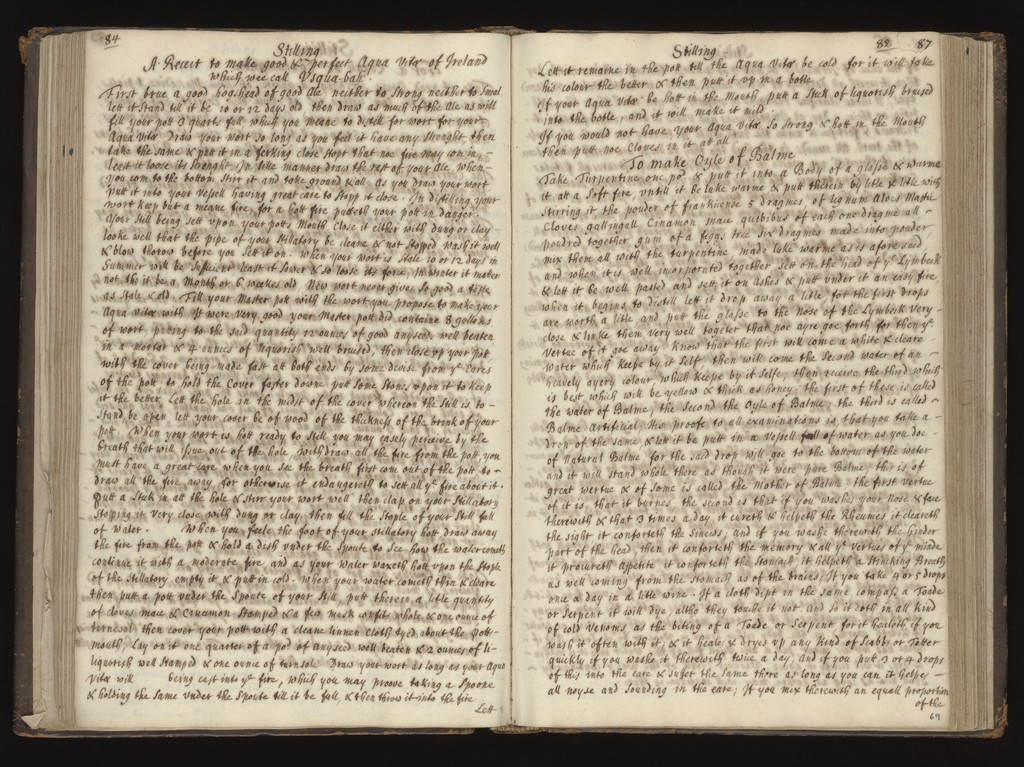 84
Stilling
A Receit to make good & perfect Aqua Vitæ of Ireland
which wee call Usqua-bah.
First brue a good hogshead of good Ale neither to strong neither to small
lett it stand till it be 10 or 12 days old then draw as much of the Ale as will
fill your pot 3 quarts full which you meane to distill for wort for your
Aqua Vitæ Draw your wort so long as you feel it have any strenght then
take the same & put it in a ferking close stopt that noe fire may com in
least it loose its strenght In like manner draw the rest of your Ale, when
you com to the bottom stirr it and take ground & all, as you draw your wort
putt it into your Vessell having great care to stopp it close. In distilling your
wort keep but a meane fire, for a hott fire putteth your pott in danger.
Your still being sett upon your potts mouth close it either with dung or clay
looke well that the pipe of your stillatory be cleane & not stoped wash it well
& blow thorow before you sett it on. When your wort is stale 10 or 12 days in
Summer will be sufficient least it sower & so loose its force, In winter it maketh
not tho it be a month or 6 weekes old New wort never give so good a taste
as stale & old. Fill your Master pott with the wort you propose to make your
Aqua vitæ with. It were very good your Master pott did containe 8 gollons
of wort, puting to the said quantity 12 ounces of good anyseeds well beaten
in a mortar & 4 ounces of liquorish well bruised, then close up your pott
with the cover being made fast at both ends by some devise from ye Eares
of the pott to hold the Cover faster downe putt some stones upon it to keep
it the better Lett the hole in the midst of the cover whereon the still is to
stand be open lett your cover be of wood of the thickness of the brink of your
pott. When your wort is hott ready to still you may easely perceive by the
breath that will issue out of the hole, withdraw all the fire from the pott you
must have a great care when you see the breath first com out of the pott to
draw all the fire away, for otherwise it endangereth to sett all ye fire about it.
Putt a stick in att the hole & stirr your wort well then clap on your stillatory
stopping it very close with dung or clay, then fill the stople of your still full
of water. When you feele the foot of your stillatory hott draw away
the fire from the pott & hold a dish under the spoute to see how the water cometh
continue it with a moderate fire and as your water waxeth hott upon the stople
of the stillatory, empty it & putt in cold. when your water cometh thin & cleare
then putt a pott under the spoute of your still, putt therein a litle quantity
of cloves mace & Cinnamon stamped & a few musk confits whole & one ounce of
turnesol then cover your pott with a cleane linnen cloth tyed about the pott
mouth, Lay on it one quarter of a pod of anyseed well beaten & 2 ounces of li
liquorish well stamped & one ounce of turnsole. Draw your wort as long as your Aqua
Vitæ will being cast into ye fire, which you may proove taking a spoone
& holding the same under the spoute till it be full, & then throw it into the fire
Lett
85 87
Stilling
Lett it remaine in the pott till the Aqua Vitæ be cold for it will take
his colour the better & then putt it up in a botle
If your Aqua Vitæ be hott in the mouth, putt a stick of liquorish bruised
into the botle, and it will make it mild
If you would not have your Aqua Vitæ so strong & hott in the mouth
then putt noe Cloves in it att all
To make Oyle of Balme
Take Turpentine one pod & put it into a Body of a glasse & warme
it att a soft fire untill it be luke warme & putt therein by litle & litle with
stirring it the powder of frankincense 5 dragmes, of lignum Aloes Mastic
Cloves gallingall Cinamon mace quibibus of each one dragme all
poudred together gum of a figgs tree six dragmes made into pouder
mix them all with the turpentine made luke warme as is aforesaid
and when it is well incorporated together sett on the head of ye Lymbeck
& lett it be well pasted and sett it on ashes & putt under it an easy fire
when it begins to distill lett it drop away a litle for the first drops
are worth a litle and putt the glasse to the Nose of the Lymbeck very
close & linke them very well together that noe ayre goe forth for then ye
vertue of it goe away know that the first will come a white & cleare
water which keepe by it self, then will come the second water of an
heavely ayery colour, which keepe by it selfe, then receive the third which
is best which will be yellow & thick as honey the first of these is called
the water of Balme, the Second the Oyle of Balme, the third is called
Balme Artificial, His proofe to all examinations is, that you take a
drop of the same & lett it be putt in a vessell full of water as you doe
of Natural Balme for the said drop will goe to the bottom of the water
and it will stand whole there as though it were pure Balme, this is of
great vertue & of some is called the mother of Balme the first vertue
of it is that it burnes the second is that if you washes your nose & face
therewith & that 3 times a day it cureth & helpeth the Rheumes it cleareth
the sight it conforteth the sinews; and if you washe therewith the hinder
part of the head, then it conforteth the memory & all ye vertues of ye minde
it procureth Apetite it conforteth the stomach, it helpeth a stinking breath
as well coming from the stomack as of the braine, If you take 4 or 5 drops
once a day in a litle wine. If a cloth dept in the same compass a Toade
or Serpent it will dye, altho they touche it not and so it doth in all kind
of cold venoms as the biting of a Toade or Serpent for it healeth if you
wash it often with it, & it heals & dryes up any kind of scabbs or Tetter
quickly if you washe it therewith twice a day, and if you put 3 or 4 drops
of this into the eare & suffer the same there as long as you can it helpes
all noyse and sounding in the eare; If you mix therewith an equall proportion
of the
69